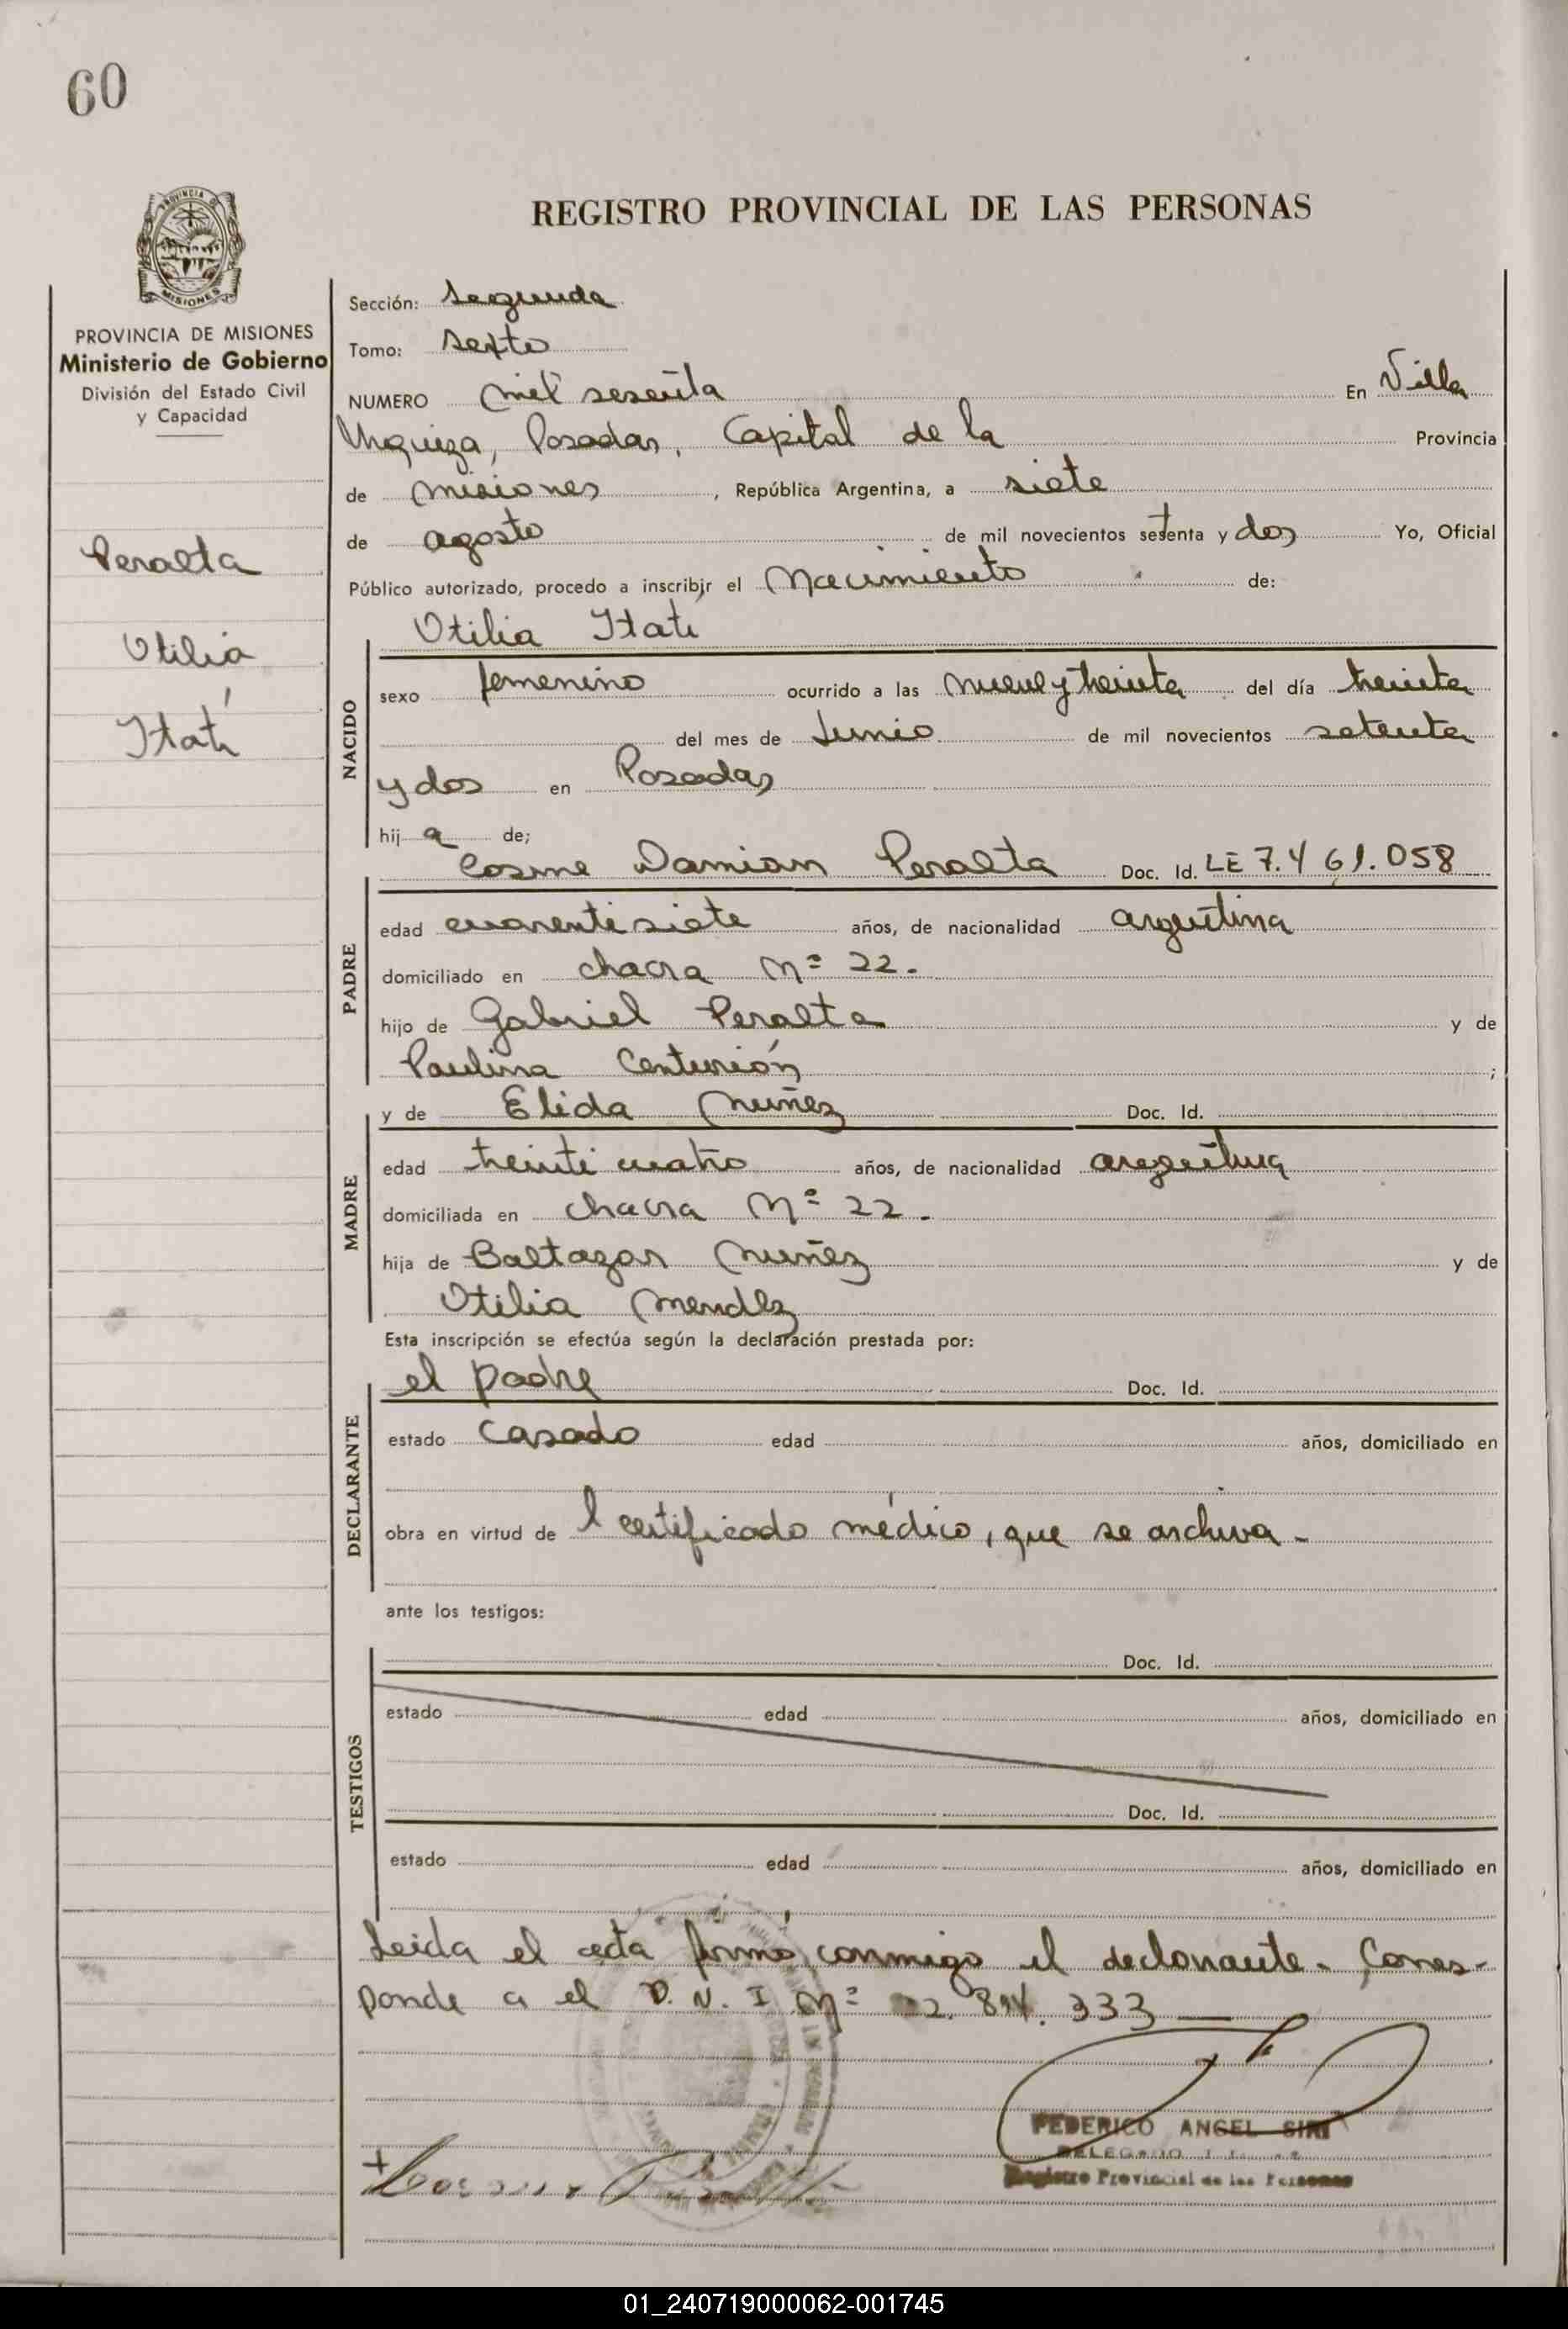 60
REGISTRO PROVINCIAL DE LAS PERSONAS
PROVINCIA DE
MISIONES
PROVINCIA DE MISIONES
Ministerio de Gobierno
División del Estado Civil
y Capacidad
Peralta
Otilia
Itatí
Sección: Segunda
Tomo: Sexto
NUMERO mil sesenta En Villa
Urquiza, Posadas, Capital de la Provincia
de Misiones, República Argentina, a siete
de agosto de mil novecientos setenta y dos Yo, Oficial
Público autorizado, procedo a inscribir el Nacimiento de:
Otilia Itati
NACIDO
sexo femenino ocurrido a las nueve y treinta del día treinta
del mes de Junio de mil novecientos setenta
y dos en Posadas
hij a de;
Cosme Damian Peralta Doc. Id. LE 7.461.058
PADRE
edad cuarentisiete años, de nacionalidad argentina
domiciliado en chacra Nº 22.
hijo de Gabriel Peralta y de
Paulina Centurión ;
y de Elida Nuñez Doc. Id.
MADRE
edad treinti cuatro años, de nacionalidad argentina
domiciliada en chacra Nº 22.
hija de Baltazar Nuñez y de
Otilia Mendez
Esta inscripción se efectúa según la declaración prestada por:
el padre Doc. Id.
DECLARANTE
estado Casado edad años, domiciliado en
obra en virtud de l certificado médico, que se archiva -
ante los testigos:
Doc. Id.
TESTIGOS
estado edad años, domiciliado en
Doc. Id.
estado edad años, domiciliado en
Leida el acta firmó conmigo el declarante. Corres-
ponde a el D. N. I Nº 333
FEDERICO ANGEL SIRI
DELEGADO
Registro Provincial de las Personas
01_240719000062-001745